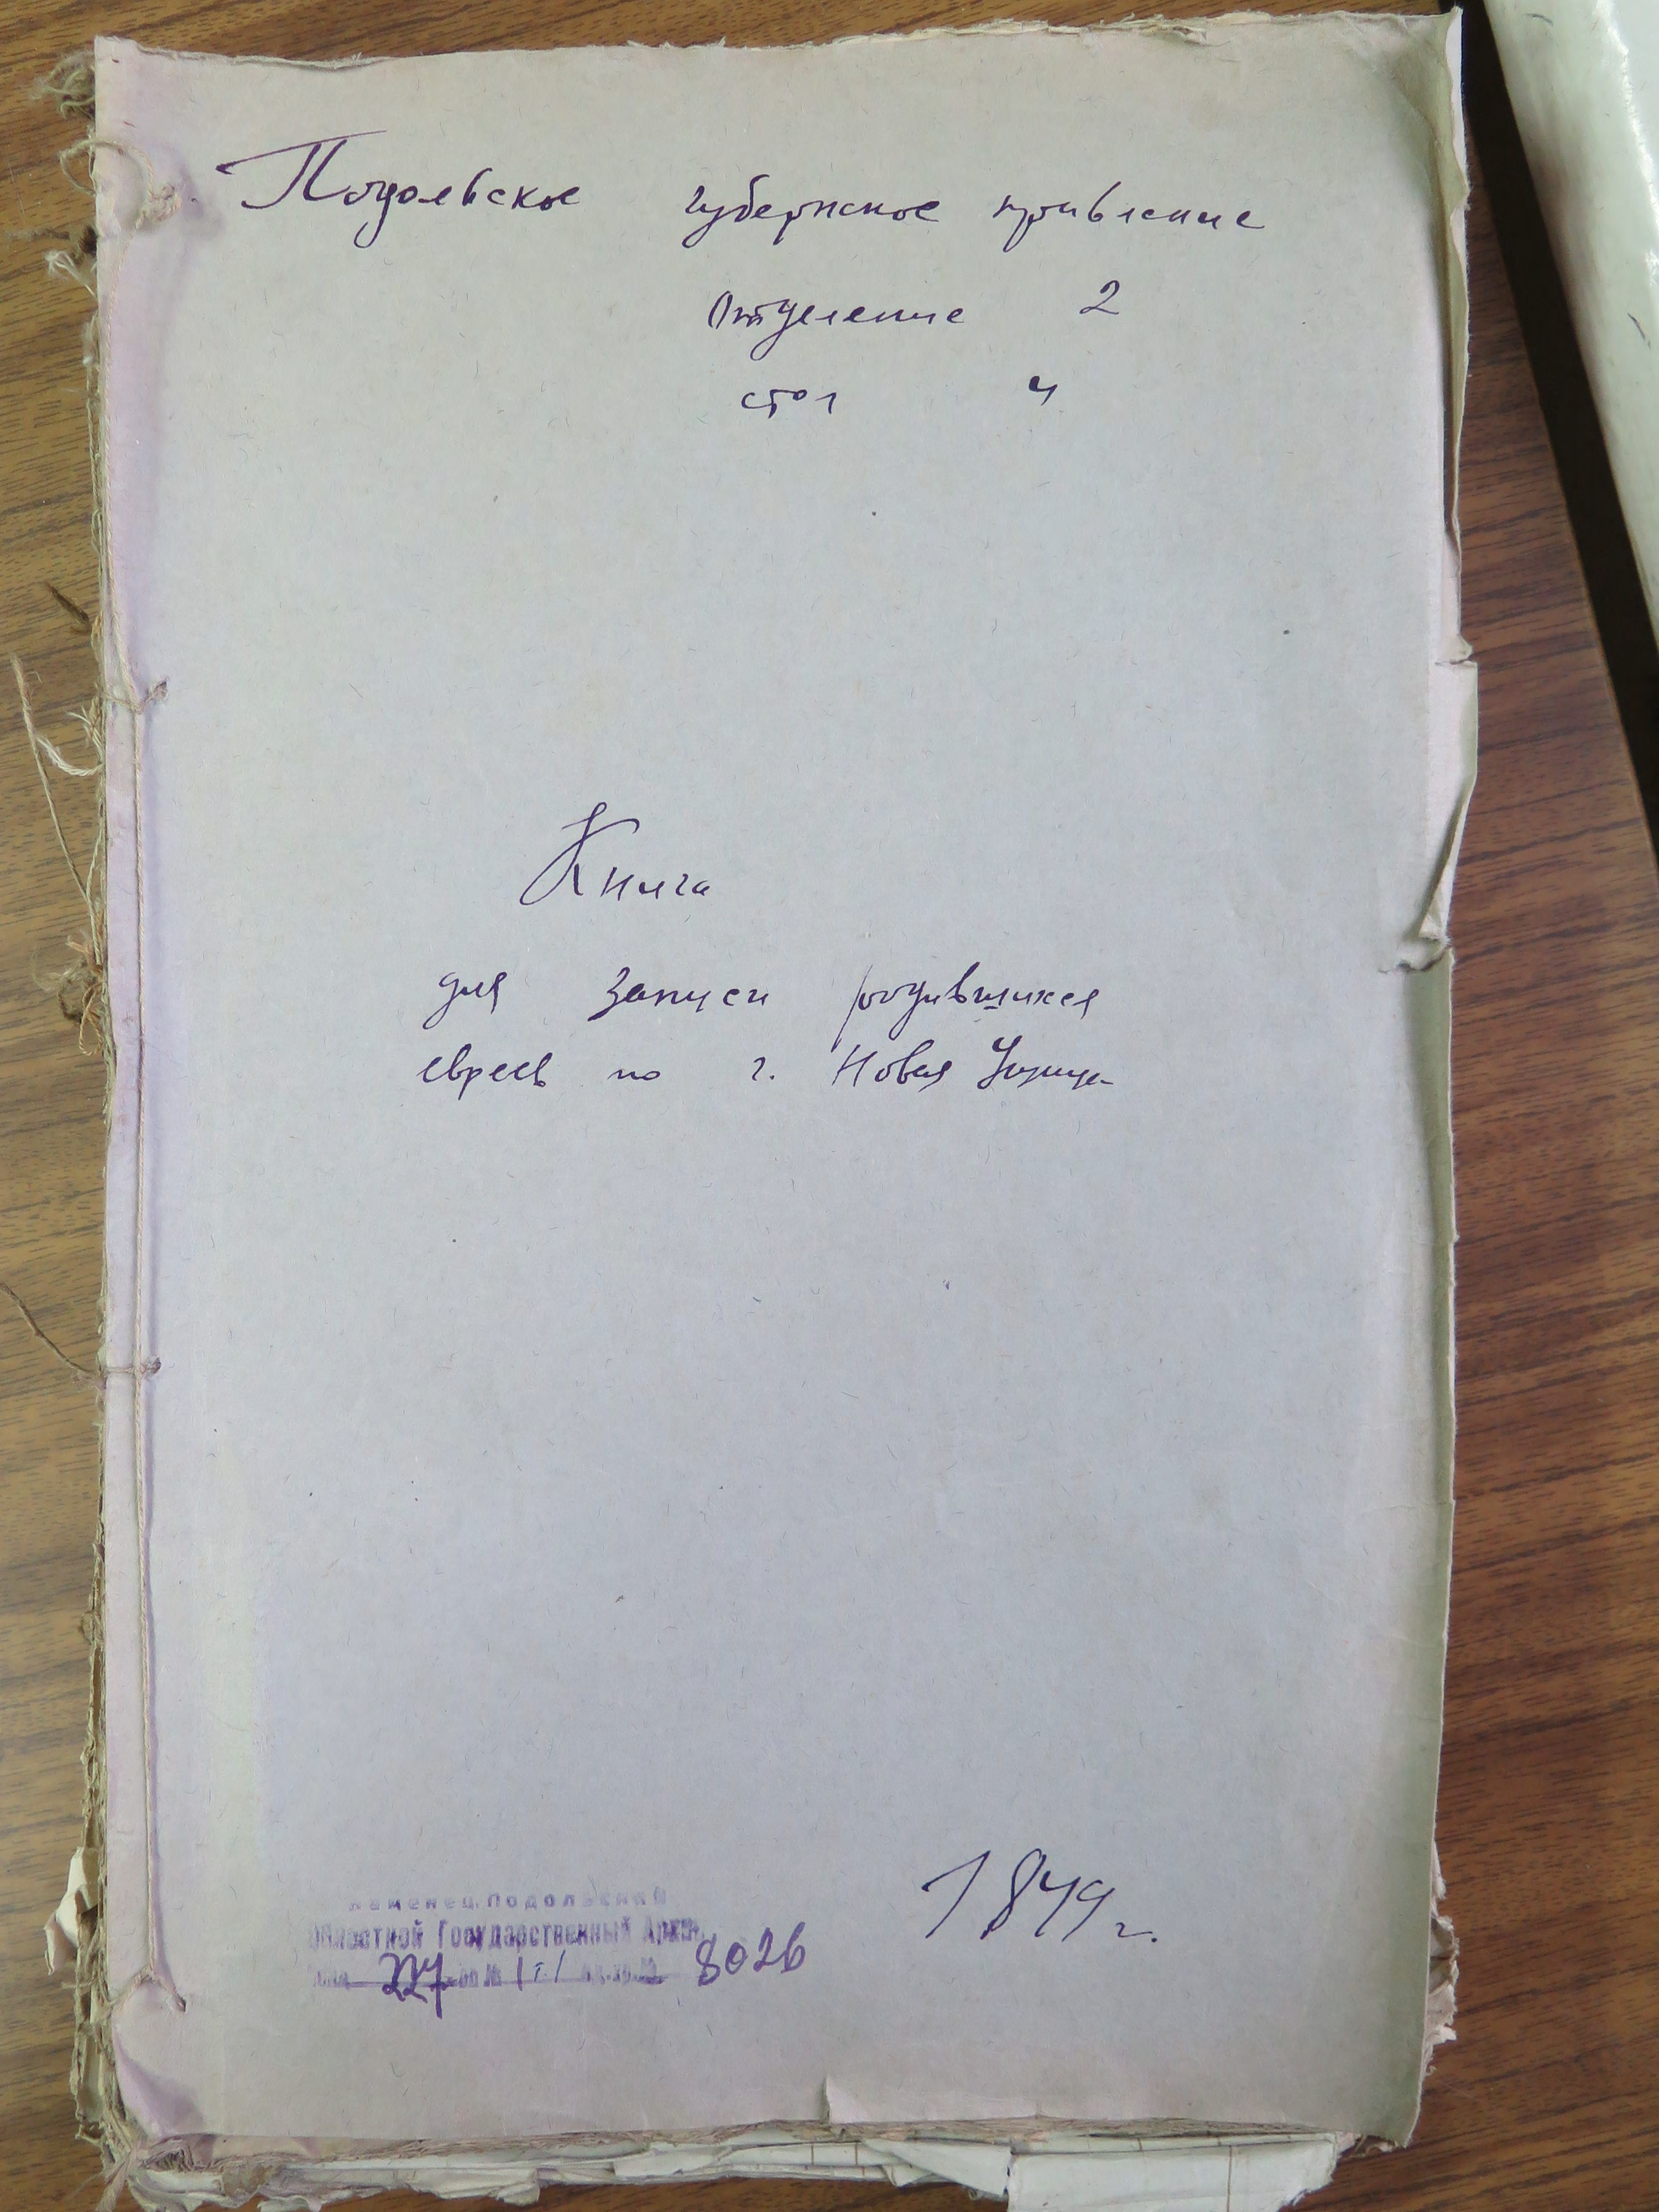 Подольское губернское правление
Отделение 2
стол 4
Книга
для записи родившихся
евреев по г. Новая Ушица
1849 г.
Каменец-Подольский
Областной Государственный Архив
227 оп № 8026